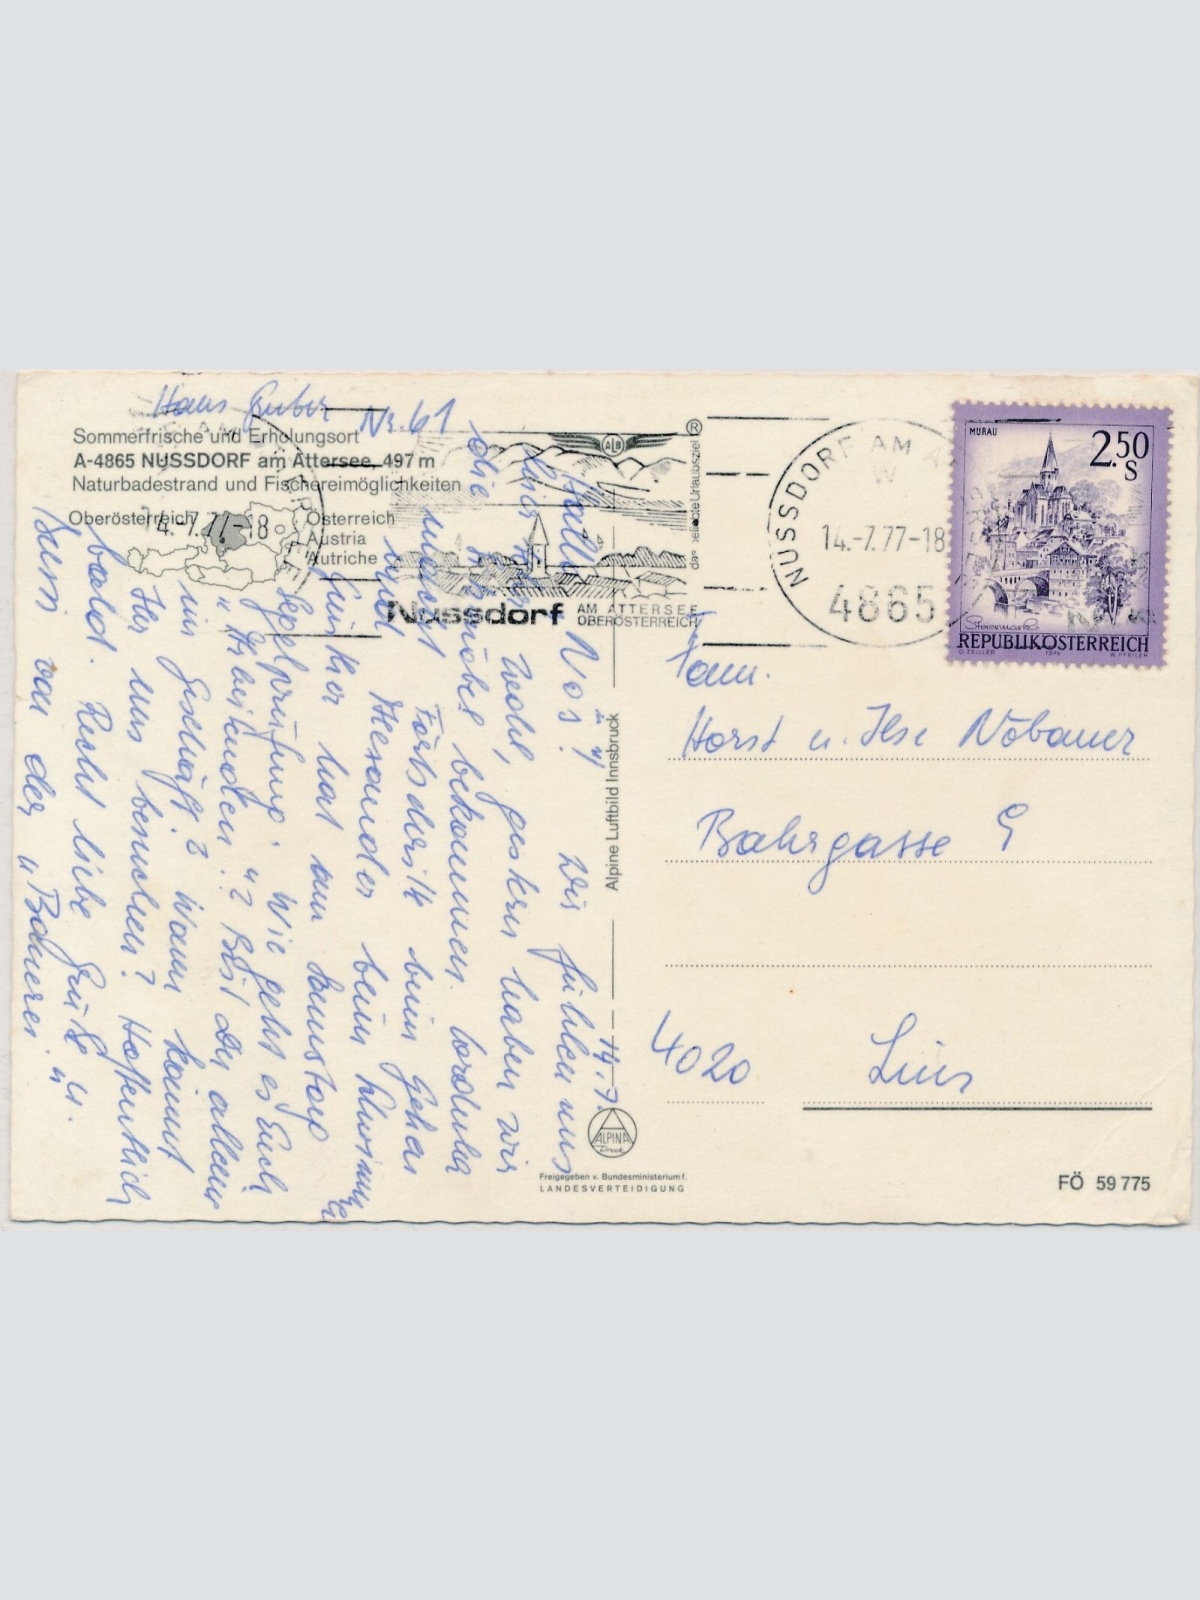 Hans Gruber Nr. 61
Sommerfrische und Erholungsort
A-4865 NUSSDORF am Attersee, 497 m
Naturbadestrand und Fischereimöglichkeiten
Oberösterreich
Österreich
Austria
Autriche
14.-7.77-18
ALB
®
das beliebte Urlaubsziel
Nussdorf AM ATTERSEE
OBERÖSTERREICH
NUSSDORF AM A
14.-7.77-18
4865
MURAU
2.50
S
Steiermark
REPUBLIK ÖSTERREICH
O. ZEILLER 1974 W. PFEILER
14.7.
Hallo Wir fühlen uns
hier wohl, gestern haben wir
die Möbel bekommen.
macht Fortschritte beim Gehen
und Alexander beim Schwimmen
Günther hat am Samstag
Segelprüfung. Wie geht es Euch
"Arbeitenden"? Bist du allein
im Geschäft? Wann kommt
Ihr uns besuchen? Hoffentlich
bald. Recht liebe Grüße u.
von der
Alpine Luftbild Innsbruck
ALPINA
Druck
Freigegeben v. Bundesministerium f.
LANDESVERTEIDIGUNG
Fam.
Horst u. Ilse Nöbauer
Bahrgasse 9
4020 Linz
FÖ 59 775